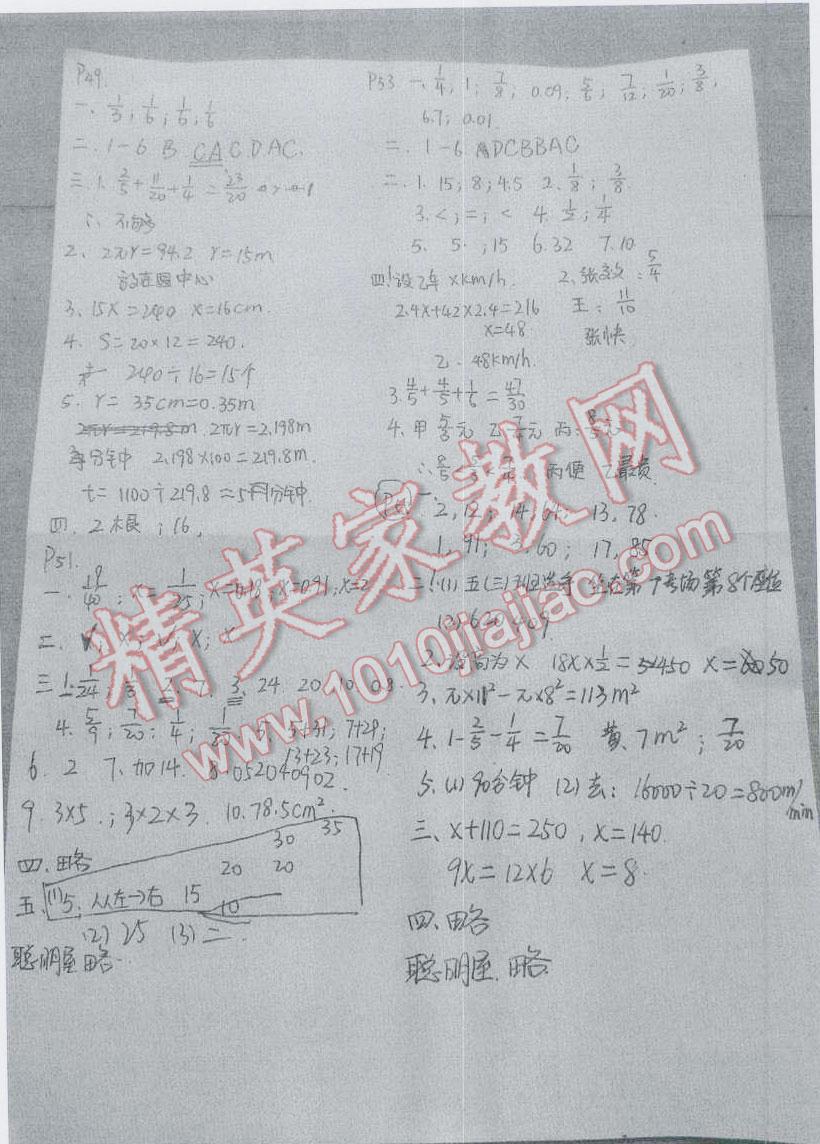 P49.
一. 1/3; 1/6; 1/6; 1/6
二. 1-6 B CACDAC.
三. 1. 2/5 + 11/20 + 1/4 = 23/20
∴ 不够
2. 2πr=94.2 r=15m
放在圆中心
3. 15x=240 x=16cm.
4. S=20×12=240.
240÷16=15个
5. r= 35cm=0.35m
2πr=2.198m
每分钟 2.198×100=219.8m.
t=1100÷219.8≈5 分钟.
四. 2根; 16,
P51.
x=0.91; x=2
二.
三. 24. 20. 10. 0.8.
4. 5/9; 7/20; 1/4; 5+31; 7+29;
13+23; 17+19
6. 2 7. 加14. 8. 052040902.
9. 3×5.; 3×2×3. 10. 78.5cm².
30 35
四. 略 20 20
五. (1) 5. 从左→右 15 10
(2) 25 (3) 二.
聪明屋 略.
P53 一. 1/4; 1; 7/8; 0.09; 5/6; 7/12; 1/20; 3/8,
6.7; 0.01.
二. 1-6 ADCBBAC
二. 1. 15; 8; 4.5 2. 1/8; 3/8.
3. <; =; < 4. 1/2; 1/4
5. 5. ; 15 6. 32 7. 10.
四! 设乙车 xkm/h. 2. 张效: 5/4
2.4x+42×2.4=216 王: 11/10
x=48. 张快.
乙. 48km/h.
3. 4/5 + 4/5 + 1/6 = 47/30
4. 甲 5/3元 乙 7/4元 丙: 8/5元
丙便 乙最贵.
2, 12; 14, 64; 13, 78.
1, 91; 60; 17, 85
二! (1) 五(三)班选手 坐在第 考场 第8个座位
(2) 620409
2. 设高为x 18x×1/2=450 x=50
3. π×11²-π×8²=113m²
4. 1-2/5-1/4=7/20 黄. 7m²; 7/20
5. (1) 90分钟 (2) 去: 16000÷20=800m/min
三、x+110=250, x=140.
9x=12×6 x=8.
四. 略
聪明屋. 略.
精英家教网
www.1010jiajiao.com